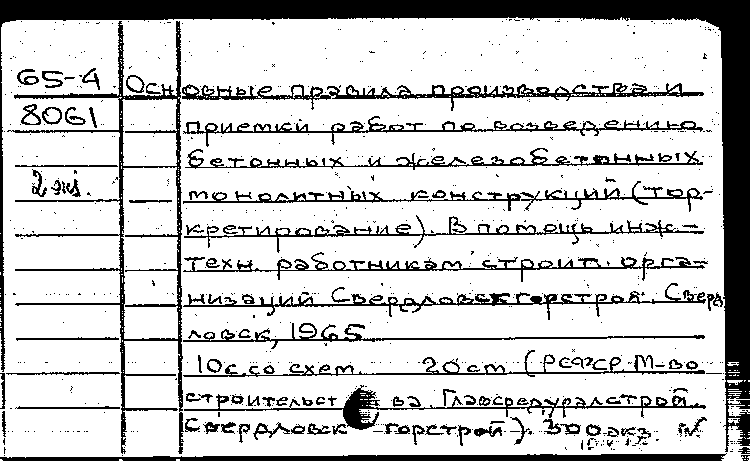 65-4 Основные правила производства и
8061 приемки работ по возведению
бетонных и железобетонных
2 экз. монолитных конструкций (тор-
кретирование). В помощь инж-
техн. работникам строит. орга-
низаций Свердловскгорстроя. Сверд
ловск, 1965
10с. со схем. 20 см (РСФСР. М-во
строительст ва Главсредуралстрой.
Свердловск горстрой). 300 экз.